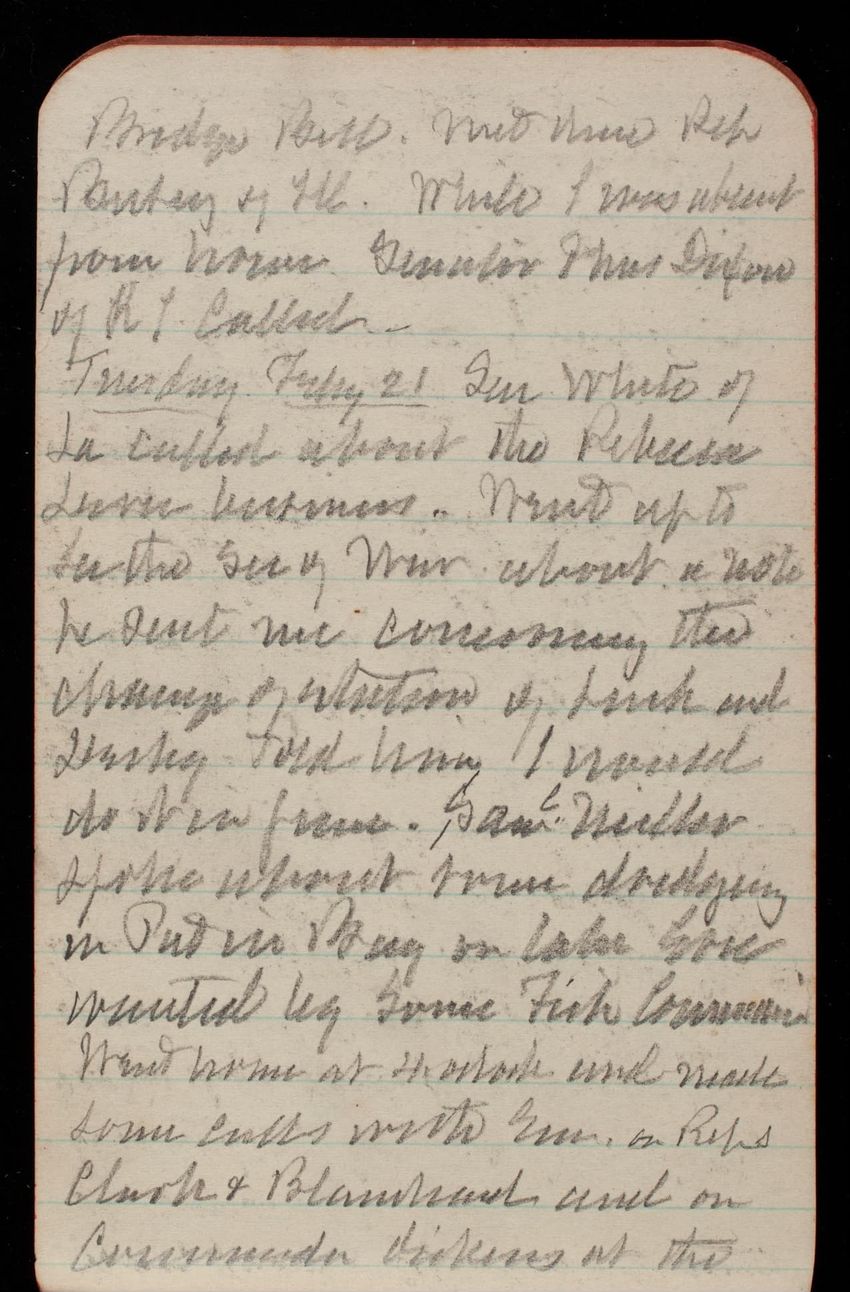 Bridge Bill. Met there Rep
of Ill. While I was absent
from home Senator Thos Dixon
of R I. Called.
Tuesday Feby 21 Sen White of
La called about the Rebecca
business.. Went up to
See the Sec of War about a note
he sent me concerning the
change of station of Lusk and
told him I would
do it in June. Saml Miller
spoke about some dredging
in Put in Bay on lake Erie
wanted by Some Fish
Went home at 4 oclock and made
some calls with on Reps
Clark & Blanchard and on
Commander Dickens at the